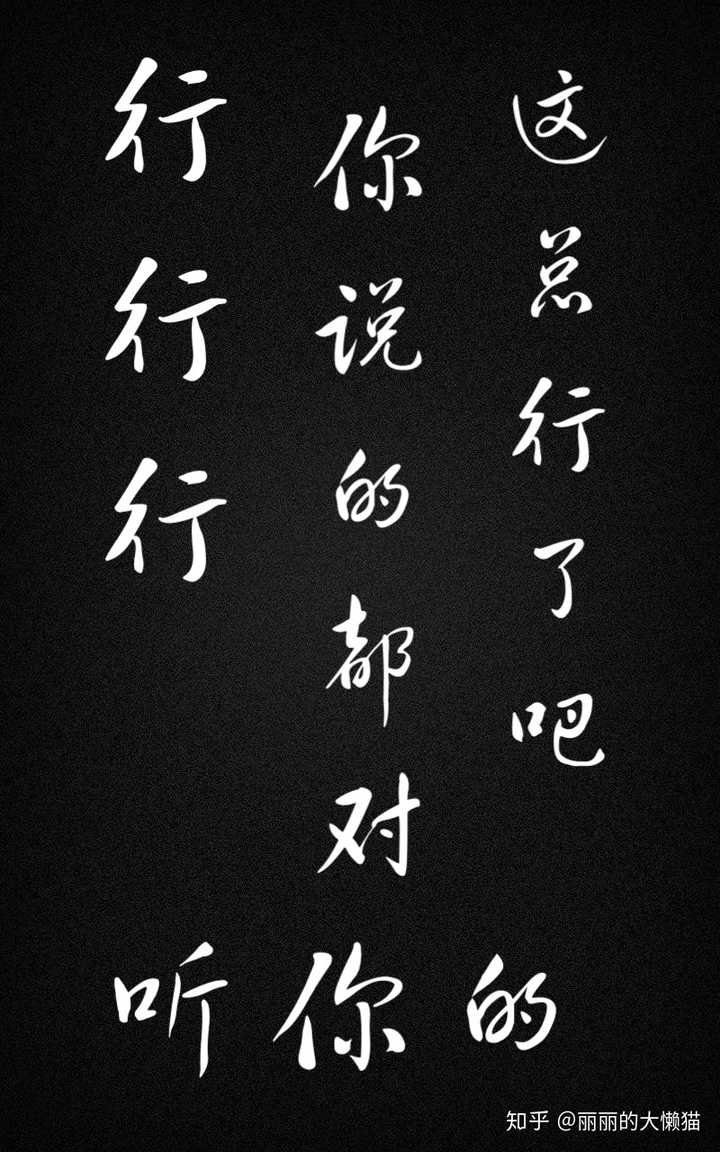 行行行
你说的都对
这总行了吧
听你的
知乎 @丽丽的大懒猫